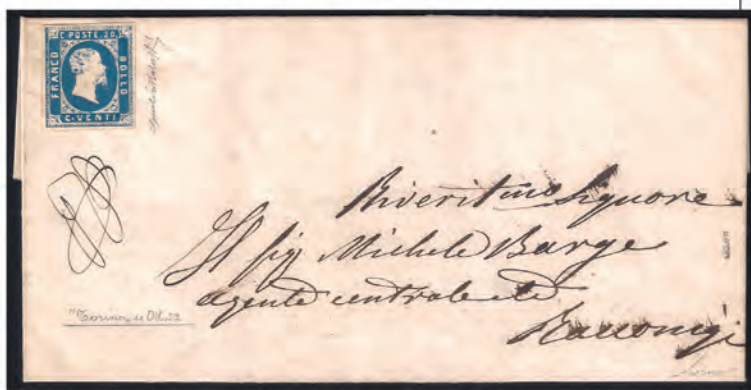 C. POSTE. 20.
FRANCO
BOLLO
C. VENTI
Riverit.mo Signore
Il Sig Michele Barge
agente centrale
Racconigi